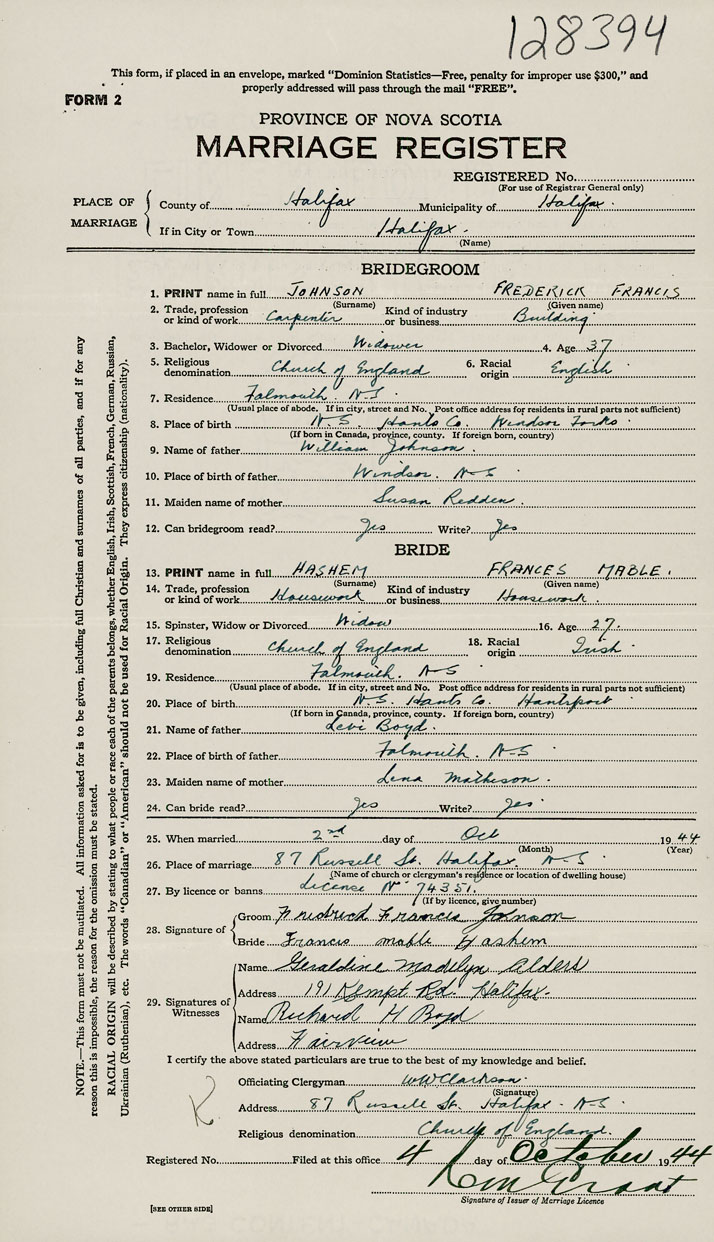 128394
This form, if placed in an envelope, marked "Dominion Statistics—Free, penalty for improper use $300," and
properly addressed will pass through the mail "FREE".
FORM 2
PROVINCE OF NOVA SCOTIA
MARRIAGE REGISTER
REGISTERED No.
(For use of Registrar General only)
PLACE OF MARRIAGE
County of Halifax Municipality of Halifax.
If in City or Town Halifax.
(Name)
BRIDEGROOM
1. PRINT name in full JOHNSON FREDERICK FRANCIS
(Surname) (Given name)
2. Trade, profession or kind of work Carpenter Kind of industry or business Building
3. Bachelor, Widower or Divorced Widower 4. Age 37
5. Religious denomination Church of England 6. Racial origin English
7. Residence Falmouth. N-S
(Usual place of abode. If in city, street and No. Post office address for residents in rural parts not sufficient)
8. Place of birth N.S. Hants Co. Windsor Forks
(If born in Canada, province, county. If foreign born, country)
9. Name of father William Johnson.
10. Place of birth of father Windsor. N-S
11. Maiden name of mother Susan Redden.
12. Can bridegroom read? Yes Write? Yes
BRIDE
13. PRINT name in full HASHEM FRANCES MABLE.
(Surname) (Given name)
14. Trade, profession or kind of work Housework Kind of industry or business Housework.
15. Spinster, Widow or Divorced Widow 16. Age 27.
17. Religious denomination Church of England 18. Racial origin Irish
19. Residence Falmouth. N-S
(Usual place of abode. If in city, street and No. Post office address for residents in rural parts not sufficient)
20. Place of birth N.S. Hants Co. Hantsport
(If born in Canada, province, county. If foreign born, country)
21. Name of father Levi Boyd.
22. Place of birth of father Falmouth. N-S
23. Maiden name of mother Lena Matheson.
24. Can bride read? Yes Write? Yes
25. When married 2nd day of Oct 1944
(Month) (Year)
26. Place of marriage 87 Russell St. Halifax. N-S
(Name of church or clergyman's residence or location of dwelling house)
27. By licence or banns License No 74351.
(If by licence, give number)
28. Signature of
Groom Fredrick Francis Johnson
Bride Francis mable Hashem
29. Signatures of Witnesses
Name Geraldine Madelyn Alders
Address 191 Kempt Rd. Halifax.
Name Richard H Boyd
Address Fairview
I certify the above stated particulars are true to the best of my knowledge and belief.
Officiating Clergyman WW Clarkson.
(Signature)
Address 87 Russell St. Halifax - N-S
Religious denomination Church of England.
Registered No. Filed at this office 4 day of October 1944
Grant
Signature of Issuer of Marriage Licence
[SEE OTHER SIDE]
NOTE.—This form must not be mutilated. All information asked for is to be given, including full Christian and surnames of all parties, and if for any
reason this is impossible, the reason for the omission must be stated.
RACIAL ORIGIN will be described by stating to what people or race each of the parents belongs, whether English, Irish, Scottish, French, German, Russian,
Ukrainian (Ruthenian), etc. The words "Canadian" or "American" should not be used for Racial Origin. They express citizenship (nationality).